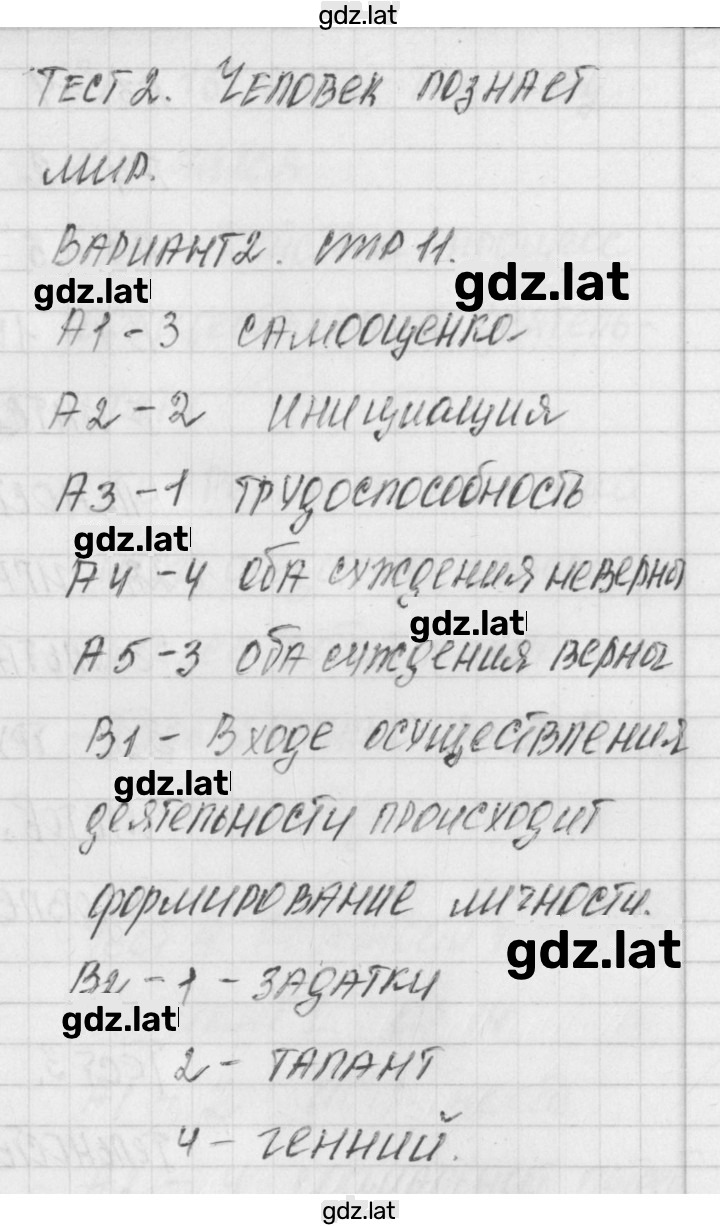 gdz.lat
Тест 2. Человек познает
мир.
Вариант 2. стр 11.
gdz.lat
gdz.lat
А1 - 3 самооценка
А2 - 2 инициация
А3 - 1 трудоспособность
gdz.lat
А4 - 4 оба суждения неверны
gdz.lat
А5 - 3 оба суждения верны
В1 - В ходе осуществления
gdz.lat
деятельности происходит
формирование личности.
gdz.lat
В2 - 1 - задатки
gdz.lat
2 - талант
4 - генний.
gdz.lat